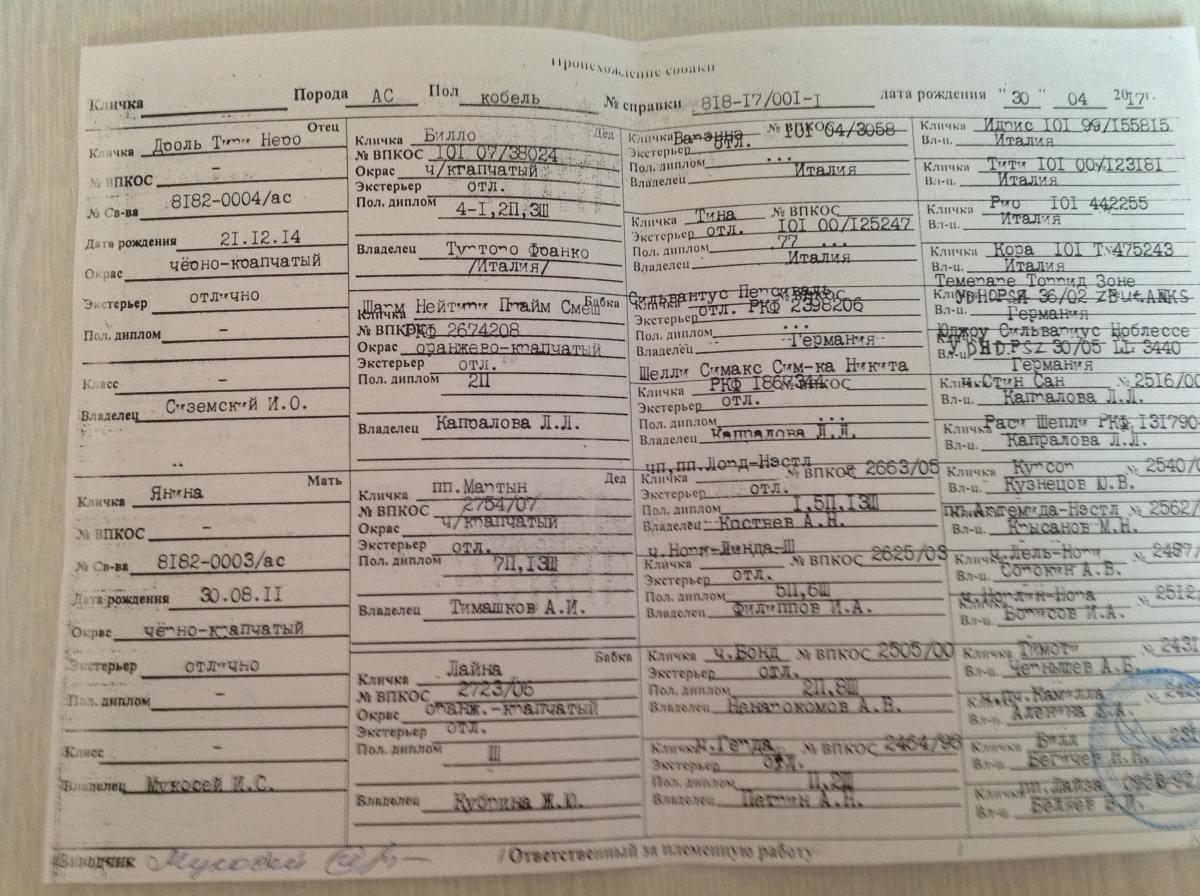 Происхождение собаки
Кличка Порода АС Пол кобель № справки 818-17/001-1 дата рождения "30" 04 2017г.
Отец
Кличка Дроль Тири Неро
№ ВПКОС –
№ Св-ва 8182-0004/ас
Дата рождения 21.12.14
Окрас чёрно-крапчатый
Экстерьер отлично
Пол. диплом –
Класс –
Владелец Сиземский И.О.
Мать
Кличка Янина
№ ВПКОС –
№ Св-ва 8182-0003/ас
Дата рождения 30.08.11
Окрас чёрно-крапчатый
Экстерьер отлично
Пол. диплом –
Класс –
Владелец Мукосей И.С.
Дед
Кличка Билло
№ ВПКОС 101 07/38024
Окрас ч/крапчатый
Экстерьер отл.
Пол. диплом 4-I,2П,3Ш
Владелец Турторо Франко
/Италия/
Бабка
Шарм Нейтири Прайм Смеш
Кличка
№ ВПКОС РКФ 2674208
Окрас оранжево-крапчатый
Экстерьер отл.
Пол. диплом 2П
Владелец Капралова Л.Л.
Дед
Кличка пп.Мартын
№ ВПКОС 2754/07
Окрас ч/крапчатый
Экстерьер отл.
Пол. диплом 7П,13Ш
Владелец Тимашков А.И.
Бабка
Кличка Лайна
№ ВПКОС 2723/06
Окрас оранж.-крапчатый
Экстерьер отл.
Пол. диплом Ш
Владелец Кубрина Ж.Ю.
Кличка № ВПКОС 101 04/3058
Экстерьер отл.
Пол. диплом ...
Владелец Италия
Кличка Тина № ВПКОС
Экстерьер отл. 101 00/125247
Пол. диплом ...
Владелец Италия
Сильвантус Персиваль
Кличка № ВПКОС
Экстерьер отл. РКФ 2398206
Пол. диплом ...
Владелец Германия
Шелли Симакс Сим-ка Никита
Кличка РКФ № ВПКОС
Экстерьер отл.
Пол. диплом ...
Владелец Капралова Л.Л.
чп,пп.Лорд-Нэстл
Кличка № ВПКОС 2663/05
Экстерьер отл.
Пол. диплом 1,5П,13Ш
Владелец Костяев А.Н.
ч.Нори-Линда-Ш
Кличка № ВПКОС 2625/03
Экстерьер отл.
Пол. диплом 5П,6Ш
Владелец Филиппов И.А.
Кличка ч.Бонд № ВПКОС 2505/00
Экстерьер отл.
Пол. диплом 2П,8Ш
Владелец Ненарокомов А.В.
Кличка ч.Герда № ВПКОС 2464/98
Экстерьер отл.
Пол. диплом П,2Ш
Владелец Петрин А.Н.
Кличка Идрис 101 99/155815
Вл-ц. Италия
Кличка Тити 101 00/123181
Вл-ц. Италия
Кличка Рио 101 442255
Вл-ц. Италия
Кличка Кора 101 475243
Вл-ц. Италия
Темераре Торрид Зоне
Кличка 36/02
Вл-ц. Германия
Нобλессе
30/05 LL 3440
Вл-ц. Германия
Стин Сан № 2516/00
Вл-ц. Капралова Л.Л.
Кличка Шепли РКФ 131790
Вл-ц. Капралова Л.Л.
Кличка Курсор № 2540/0
Вл-ц. Кузнецов Ю.В.
2562/
Вл-ц. Крысанов М.Н.
ч.Лель-Нори
Кличка № 2487/
Вл-ц. Сорокин А.В.
ч.Норлин-Нора
Кличка № 2512
Вл-ц. Борисов И.А.
Кличка Тимоти № 2431
Вл-ц. Чернышев А.Б.
Камилла
Вл-ц. Аленина
Кличка Билл
Вл-ц. Бегичев Н.Н.
Кличка пп.Лайза
Вл-ц. Беляев
Заводчик Мукосей Ответственный за племенную работу